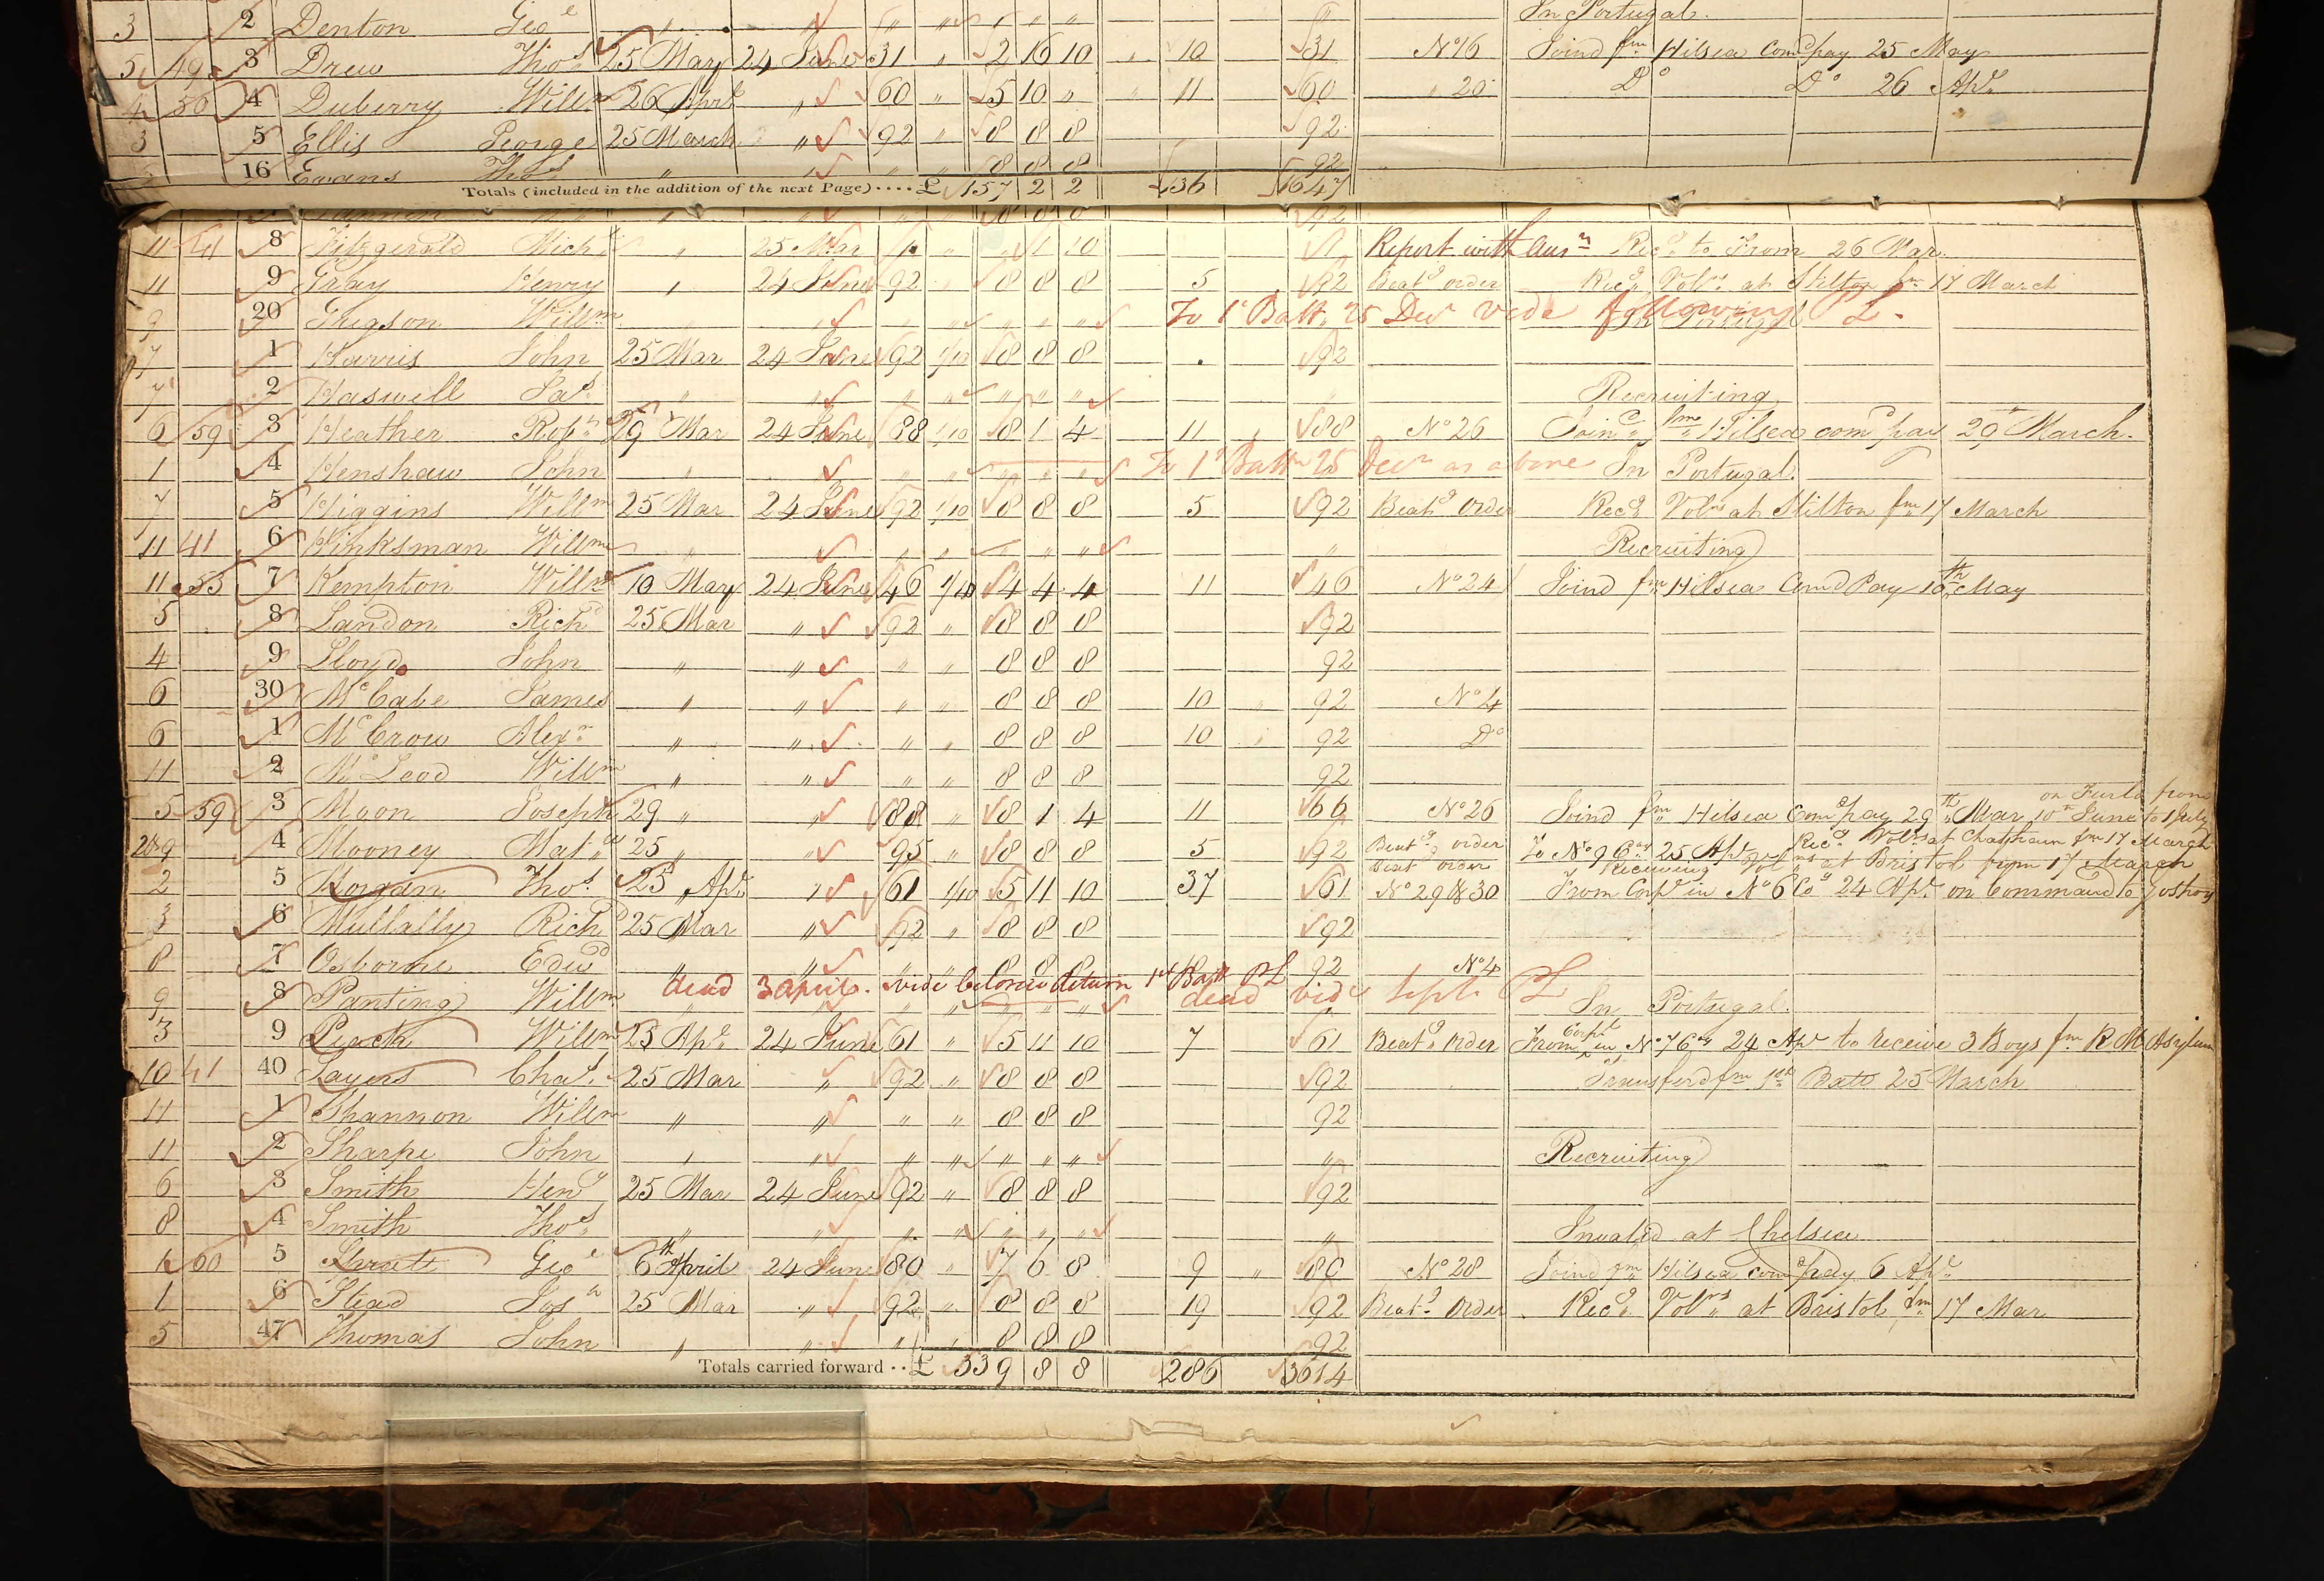 3 2 Denton Geo^e " " " " " " " " In Portugal.
5 49 3 Drew Tho^s 25 May 24 June 31 " 2 16 10 " 10 31 N^o 16 Joind f^m Hilsea Com^d pay 25 May
4 50 4 Duberry Will^m 26 Apr^l " 60 " 5 10 " " 11 60 " 20 D^o D^o 26 Ap^l
3 5 Ellis George 25 March " 92 " 8 8 8 92
16 Evans Tho^s " " " " 8 8 8 92
Totals (included in the addition of the next Page) .... £ 157 2 2 136 1647
8 8 8 92
11 41 8 Fitzgerald Mich^l " 25 Mar 1 " " 1 10 1 Report with Aus^n Rec^g to From 26 Mar
11 9 Gray Henry " 24 June 92 " 8 8 8 5 92 Beat^g order Rec^g Vol^rs at Stilton f^m 17 March
9 20 Grigson Will^m " " " " " " " To 1^t Batt^n 25 Dec^r vide following PL. In Portugal
7 1 Harris John 25 Mar 24 June 92 1/10 8 8 8 92
7 2 Haswell Ja^s " " " " " " " " Recruiting
6 59 3 Heather Rob^t 29 Mar 24 June 88 1/10 8 1 4 11 " 88 N^o 26 Join^d f^m Hilsea com^d pay 29^th March.
1 4 Henshaw John " " " " " " " To 1^t Batt^n 25 Dec^r as above In Portugal.
7 5 Higgins Will^m 25 Mar 24 June 92 1/10 8 8 8 5 92 Beat^g Order Rec^g Vol^rs at Stilton f^m 17 March
11 41 6 Hinksman Will^m " " " " " " " Recruiting
11 55 7 Kempton Will^m 10 May 24 June 46 1/10 4 4 4 11 46 N^o 24 Joind f^m Hilsea Comd Pay 10^th May
5 8 Landon Rich^d 25 Mar " 92 " 8 8 8 92
4 9 Lloyd John " " " " 8 8 8 92
6 30 M^cCabe James " " " " 8 8 8 10 " 92 N^o 4
6 1 M^cCrow Alex^r " " " " 8 8 8 10 " 92 D^o
11 2 M^cLeod Will^m " " " " 8 8 8 92
on Furlo from
5 59 3 Moon Joseph 29 " " 88 " 8 1 4 11 66 N^o 26 Joind f^m Hilsea Com^d pay 29^th Mar 10^th June to 1 July
2&9 4 Mooney Mat^w 25 " " 95 " 8 8 8 5 92 Beat^g order To N^o 9 Co^y 25 Ap^l Rec^g Vol^rs at Chatham f^m 17 March
Beat order Receiving Vol^rs at Bristol from 17 March
2 5 Morgan Tho^s 25 Ap^l " 61 1/10 5 11 10 37 61 N^o 29 & 30 From Corp^l in N^o 6 Co^y 24 Ap^l on Command to Gosport
3 6 Mullally Rich^d 25 Mar " 92 " 8 8 8 92
8 7 Osborne Edw^d " " " " 8 8 8 92 N^o 4
dead 3 April. vide Colonies Return 1^st Batt PL
9 8 Panting Will^m " " " " " " dead vide Sept^r PL In Portugal.
3 9 Peack Will^m 25 Ap^l 24 June 61 " 5 11 10 7 61 Beat^g Order From Corp^l in N^o 7 Co^y 24 Ap^l to receive 3 Boys f^m R M Asylum
10 41 40 Sayers Cha^s 25 Mar " 92 " 8 8 8 92 Transferd f^m 1^st Batt 25 March
11 1 Shannon Will^m " " " " 8 8 8 92
11 2 Sharpe John " " " " " " " " Recruiting
6 3 Smith Hen^y 25 Mar 24 June 92 " 8 8 8 92
8 4 Smith Tho^s " " " " " " " " Invalid at Chelsea
4 60 5 Geo^e 6^th April 24 June 80 " 7 6 8 9 " 80 N^o 28 Joind f^m Hilsea com^d pay 6 Ap^l
1 6 Stead Jos^h 25 Mar " 92 " 8 8 8 19 92 Beat^g Order Rec^g Vol^rs at Bristol f^m 17 Mar
5 47 Thomas John " " " " 8 8 8 92
Totals carried forward .. £ 339 8 8 286 3614